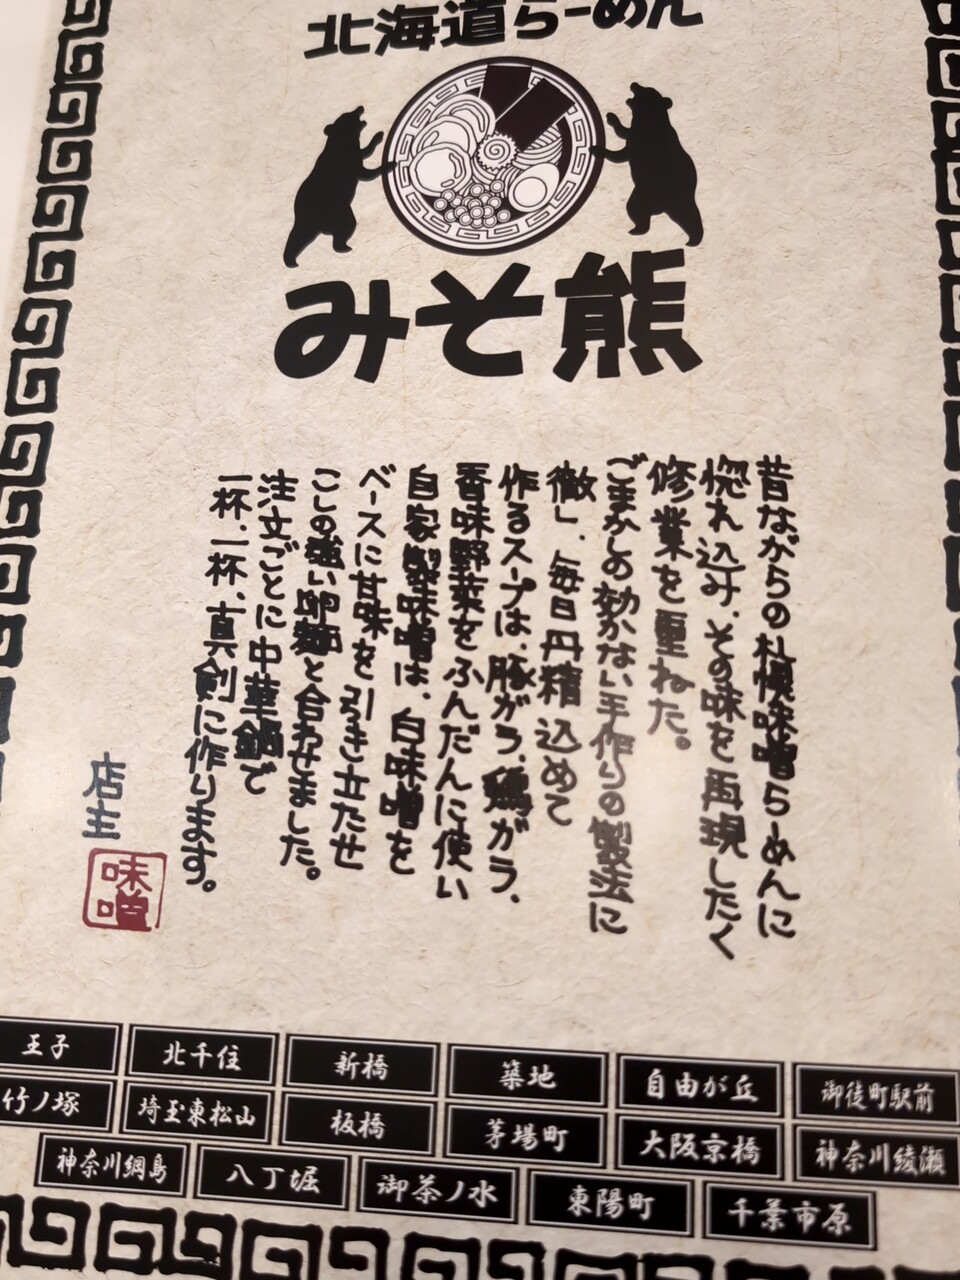 北海道らーめん
みそ熊
昔ながらの札幌味噌らーめんに
惚れ込み、その味を再現したく
修業を重ねた。
ごまかしの効かない手作りの製法に
徹し、毎日丹精込めて
作るスープは、豚がら、鶏がら、
香味野菜をふんだんに使い
自家製味噌は、白味噌を
ベースに甘味を引き立たせ
こしの強い卵麺と合わせました。
注文ごとに中華鍋で
一杯、一杯、真剣に作ります。
店主
味噌
王子 北千住 新橋 築地 自由が丘 御徒町駅前
竹ノ塚 埼玉東松山 板橋 茅場町 大阪京橋 神奈川綾瀬
神奈川綱島 八丁堀 御茶ノ水 東陽町 千葉市原